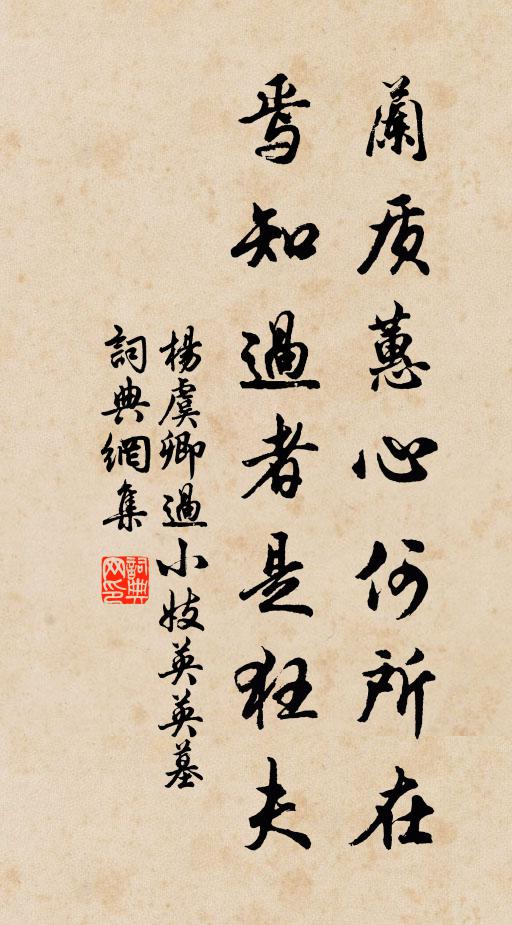 蘭质蕙心何所在
焉知過者是狂夫
楊虞卿過小妓英英墓
詞典網集
詞典网印